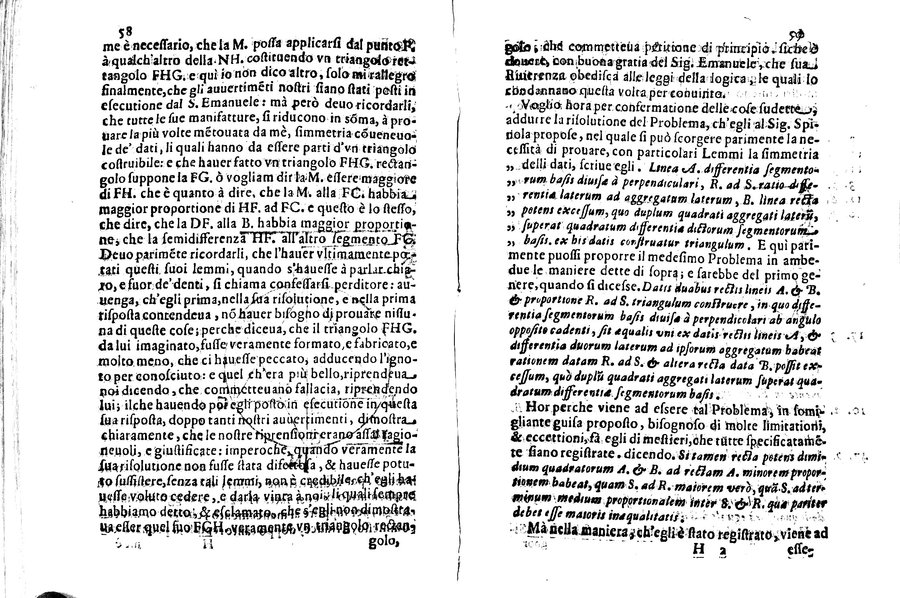 58
me è necessario, che la M. possa applicarsi dal punto F.
à qualch'altro della NH. costituendo vn triangolo ret-
tangolo FHG. e qui io non dico altro, solo mi rallegro
finalmente, che gli auuertimēti nostri siano stati posti in
esecutione dal S. Emanuele: mà però deuo ricordarli,
che tutte le sue manifatture, si riducono in sōma, à pro-
uare la più volte mētouata da mè, simmetria cōueneuo-
le de' dati, li quali hanno da essere parti d'vn triangolo
costruibile: e che hauer fatto vn triangolo FHG. rectan-
golo suppone la FG. ò vogliam dir la M. essere maggiore
di FH. che è quanto à dire, che la M. alla FC. habbia
maggior proportione di HF. ad FC. e questo è lo stesso,
che dire, che la DF. alla B. habbia maggior proportio-
ne, che la semidifferenza HF. all'altro segmento FG.
Deuo parimēte ricordarli, che l'hauer vltimamente por-
tati questi suoi lemmi, quando s'hauesse à parlar chia-
ro, e fuor de' denti, si chiama confessarsi perditore: au-
uenga, ch'egli prima, nella sua risolutione, e nella prima
risposta contendeua, nō hauer bisogno di prouare nissu-
na di queste cose; perche diceua, che il triangolo FHG.
da lui imaginato, fusse veramente formato, e fabricato, e
molto meno, che ci hauesse peccato, adducendo l'igno-
to per conosciuto: e quel ch'era più bello, riprendeua
noi dicendo, che commetteuano fallacia, riprendendo
lui; ilche hauendo poi egli posto in esecutione in questa
sua risposta, doppo tanti nostri auuertimenti, dimostra
chiaramente, che le nostre riprensioni erano assai ragio-
neuoli, e giustificate: imperoche, quando veramente la
sua risolutione non fusse stata difettosa, & hauesse potu-
to sussistere, senza tali lemmi, non è credibile, ch'egli ha-
uesse voluto cedere, e darla vinta à noi, li quali sempre
habbiamo detto; & esclamato, che s'egli non dimostra-
ua esser quel suo FGH. veramente, vn triangolo rectan-
H golo,
59
golo, che commetteua petitione di principio, siche è
douere, con buona gratia del Sig. Emanuele, che sua
Riuerenza obedisca alle leggi della logica, le quali lo
condannano questa volta per conuinto.
Voglio hora per confermatione delle cose sudette,
addurre la risolutione del Problema, ch'egli al Sig. Spi-
nola propose, nel quale si può scorgere parimente la ne-
cessità di prouare, con particolari Lemmi la simmetria
„ delli dati, scriue egli. Linea A. differentia segmento-
„ rum basis diuisa à perpendiculari, R. ad S. ratio diffe-
„ rentia laterum ad aggregatum laterum, B. linea recta
„ potens excessum, quo duplum quadrati aggregati laterū,
„ superat quadratum differentia dictorum segmentorum
„ basis. ex his datis construatur triangulum. E qui pari-
mente puossi proporre il medesimo Problema in ambe-
due le maniere dette di sopra; e sarebbe del primo ge-
nere, quando si dicesse. Datis duabus rectis lineis A. & B.
& proportione R. ad S. triangulum construere, in quo diffe-
rentia segmentorum basis diuisa à perpendiculari ab angulo
opposito cadenti, sit æqualis vni ex datis rectis lineis A, &
differentia duorum laterum ad ipsorum aggregatum habeat
rationem datam R. ad S. & altera recta data B. possit ex-
cessum, quò duplū quadrati aggregati laterum superat qua-
dratum differentia segmentorum basis.
Hor perche viene ad essere tal Problema, in somi-
gliante guisa proposto, bisognoso di molte limitationi,
& eccettioni, fà egli di mestieri, che tutte specificatamē-
te siano registrate. dicendo. Si tamen recta potens dimi-
dium quadratorum A. & B. ad rectam A. minorem propor-
tionem habeat, quam S. ad R. maiorem verò, quā S. ad ter-
minum medium proportionalem inter S. & R. quæ pariter
debet esse maioris inæqualitatis;
Mà nella maniera, ch'egli è stato registrato, viene ad
H 2 esse-